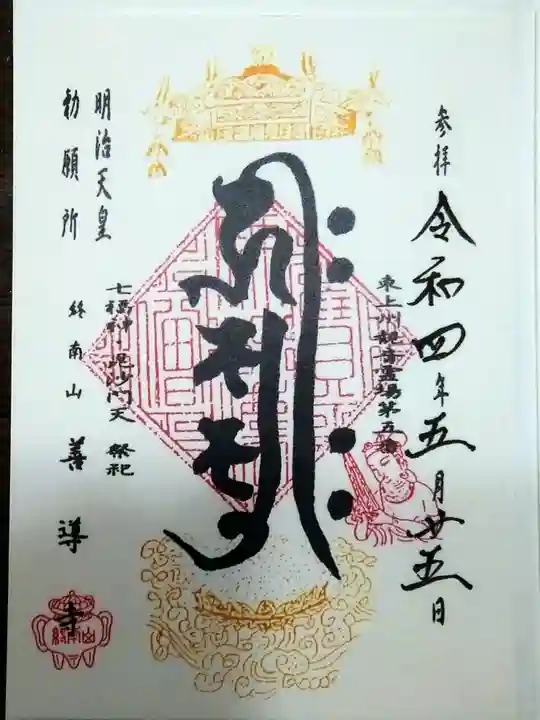 参拝
令和四年五月廿五日
東上州観音霊場第五番
明治天皇
勅願所
七福神・毘沙門天 祭祀
終南山 善導寺